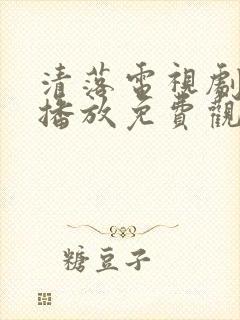 清落電視劇
播放免費觀
糖豆子